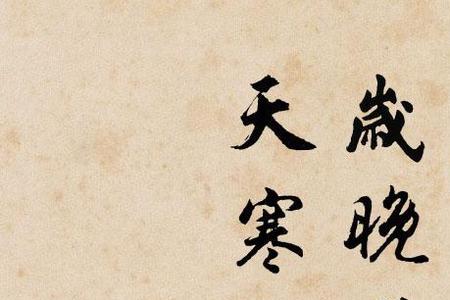 歲晚
天寒